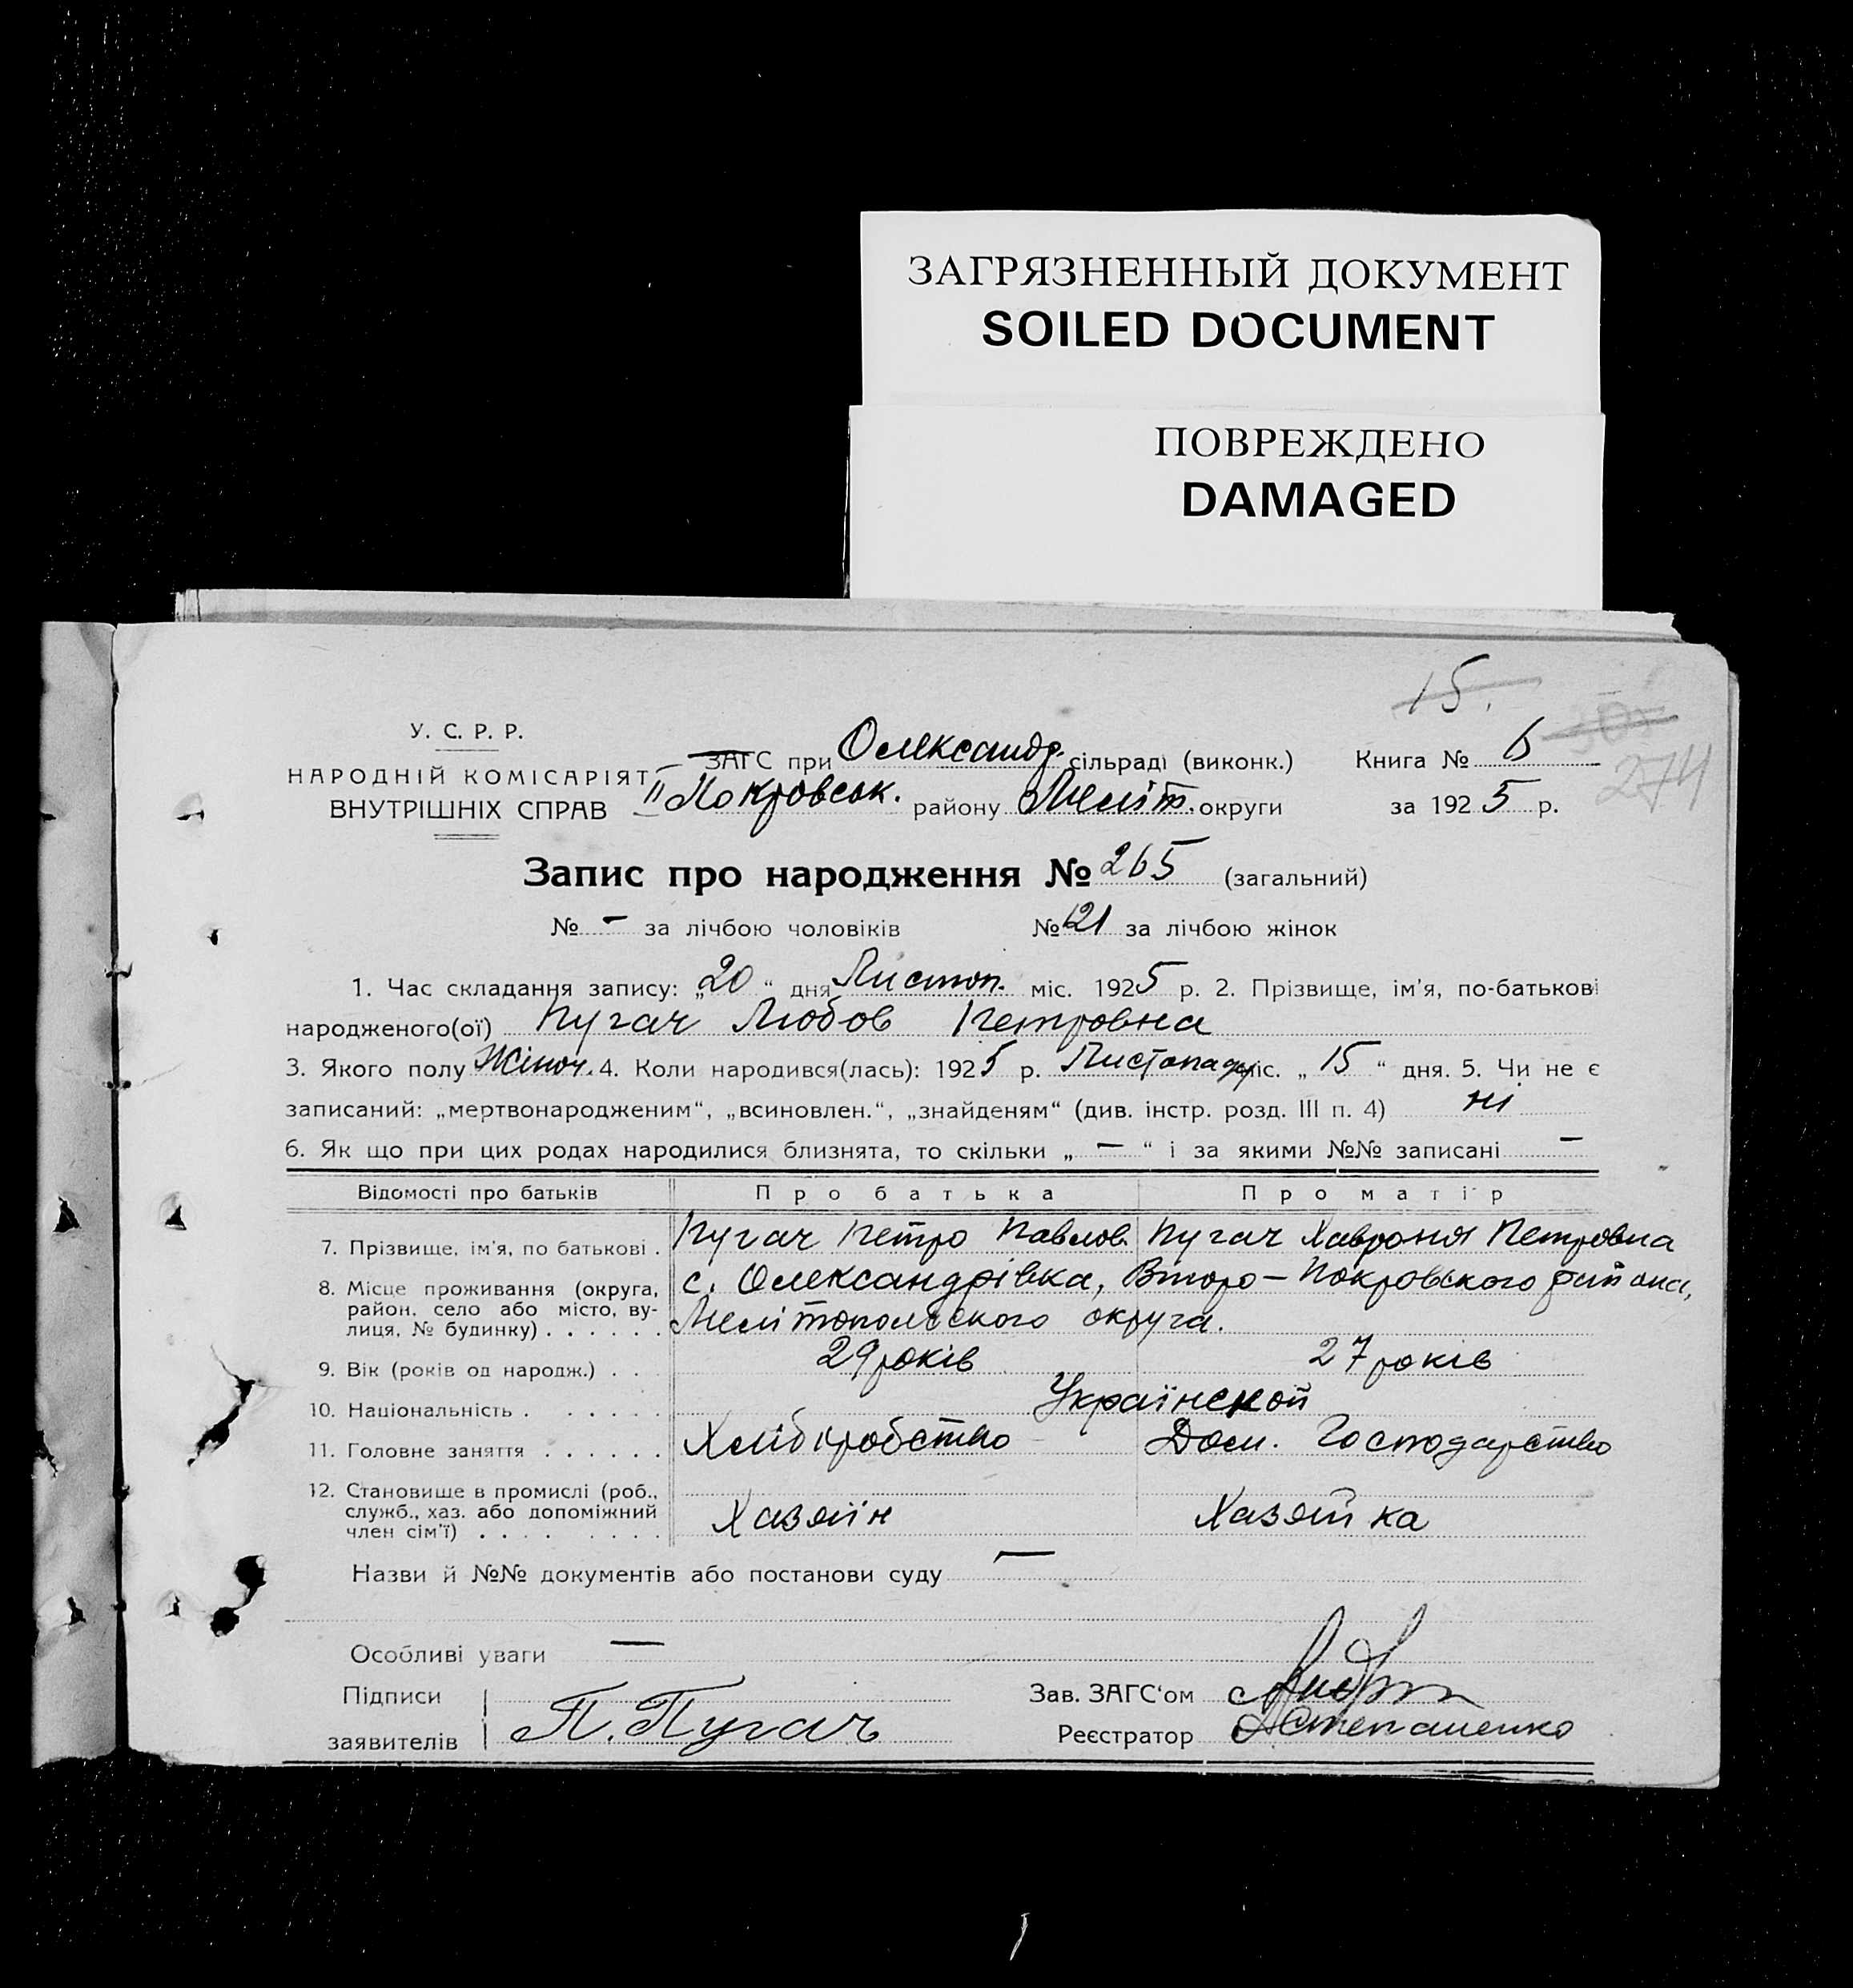 ЗАГРЯЗНЕННЫЙ ДОКУМЕНТ
SOILED DOCUMENT
ПОВРЕЖДЕНО
DAMAGED
15.
У. С. Р. Р.
НАРОДНІЙ КОМІСАРІЯТ
ВНУТРІШНІХ СПРАВ
ЗАГС при Олександр. сільраді (виконк.)
II Покровськ. району Меліт. округи
Книга № 6
307
274
за 1925 р.
Запис про народження № 265 (загальний)
№ - за лічбою чоловіків № 121 за лічбою жінок
1. Час складання запису: „20“ дня Листоп. міс. 1925 р. 2. Прізвище, ім'я, по-батькові
народженого(ої) Пугач Любов Петровна
3. Якого полу Жіноч. 4. Коли народився(лась): 1925 р. Листопаду міс. „15“ дня. 5. Чи не є
записаний: „мертвонародженим“, „всиновлен.“, „знайденям“ (див. інстр. розд. III п. 4) ні
6. Як що при цих родах народилися близнята, то скільки „—“ і за якими №№ записані —
Відомості про батьків Про батька Про матір
7. Прізвище, ім'я, по батькові . Пугач Петро Павлов. Пугач Хавроня Петровна
8. Місце проживання (округа, район, село або місто, вулиця, № будинку) . . . . . . с. Олександрівка, Второ-Покровського району,
Мелітопольского округа.
9. Вік (років од народж.) . . . 29 років 27 років
10. Національність . . . . . . Українской
11. Головне заняття . . . . . . Хліборобство Дом. Господарство
12. Становище в промислі (роб.,
служб., хаз. або допоміжний
член сім'ї) . . . . . . . . Хазяїн Хазяйка
Назви й №№ документів або постанови суду —
Особливі уваги —
Підписи
заявителів П. Пугач
Зав. ЗАГС'ом
Реєстратор Степаненко